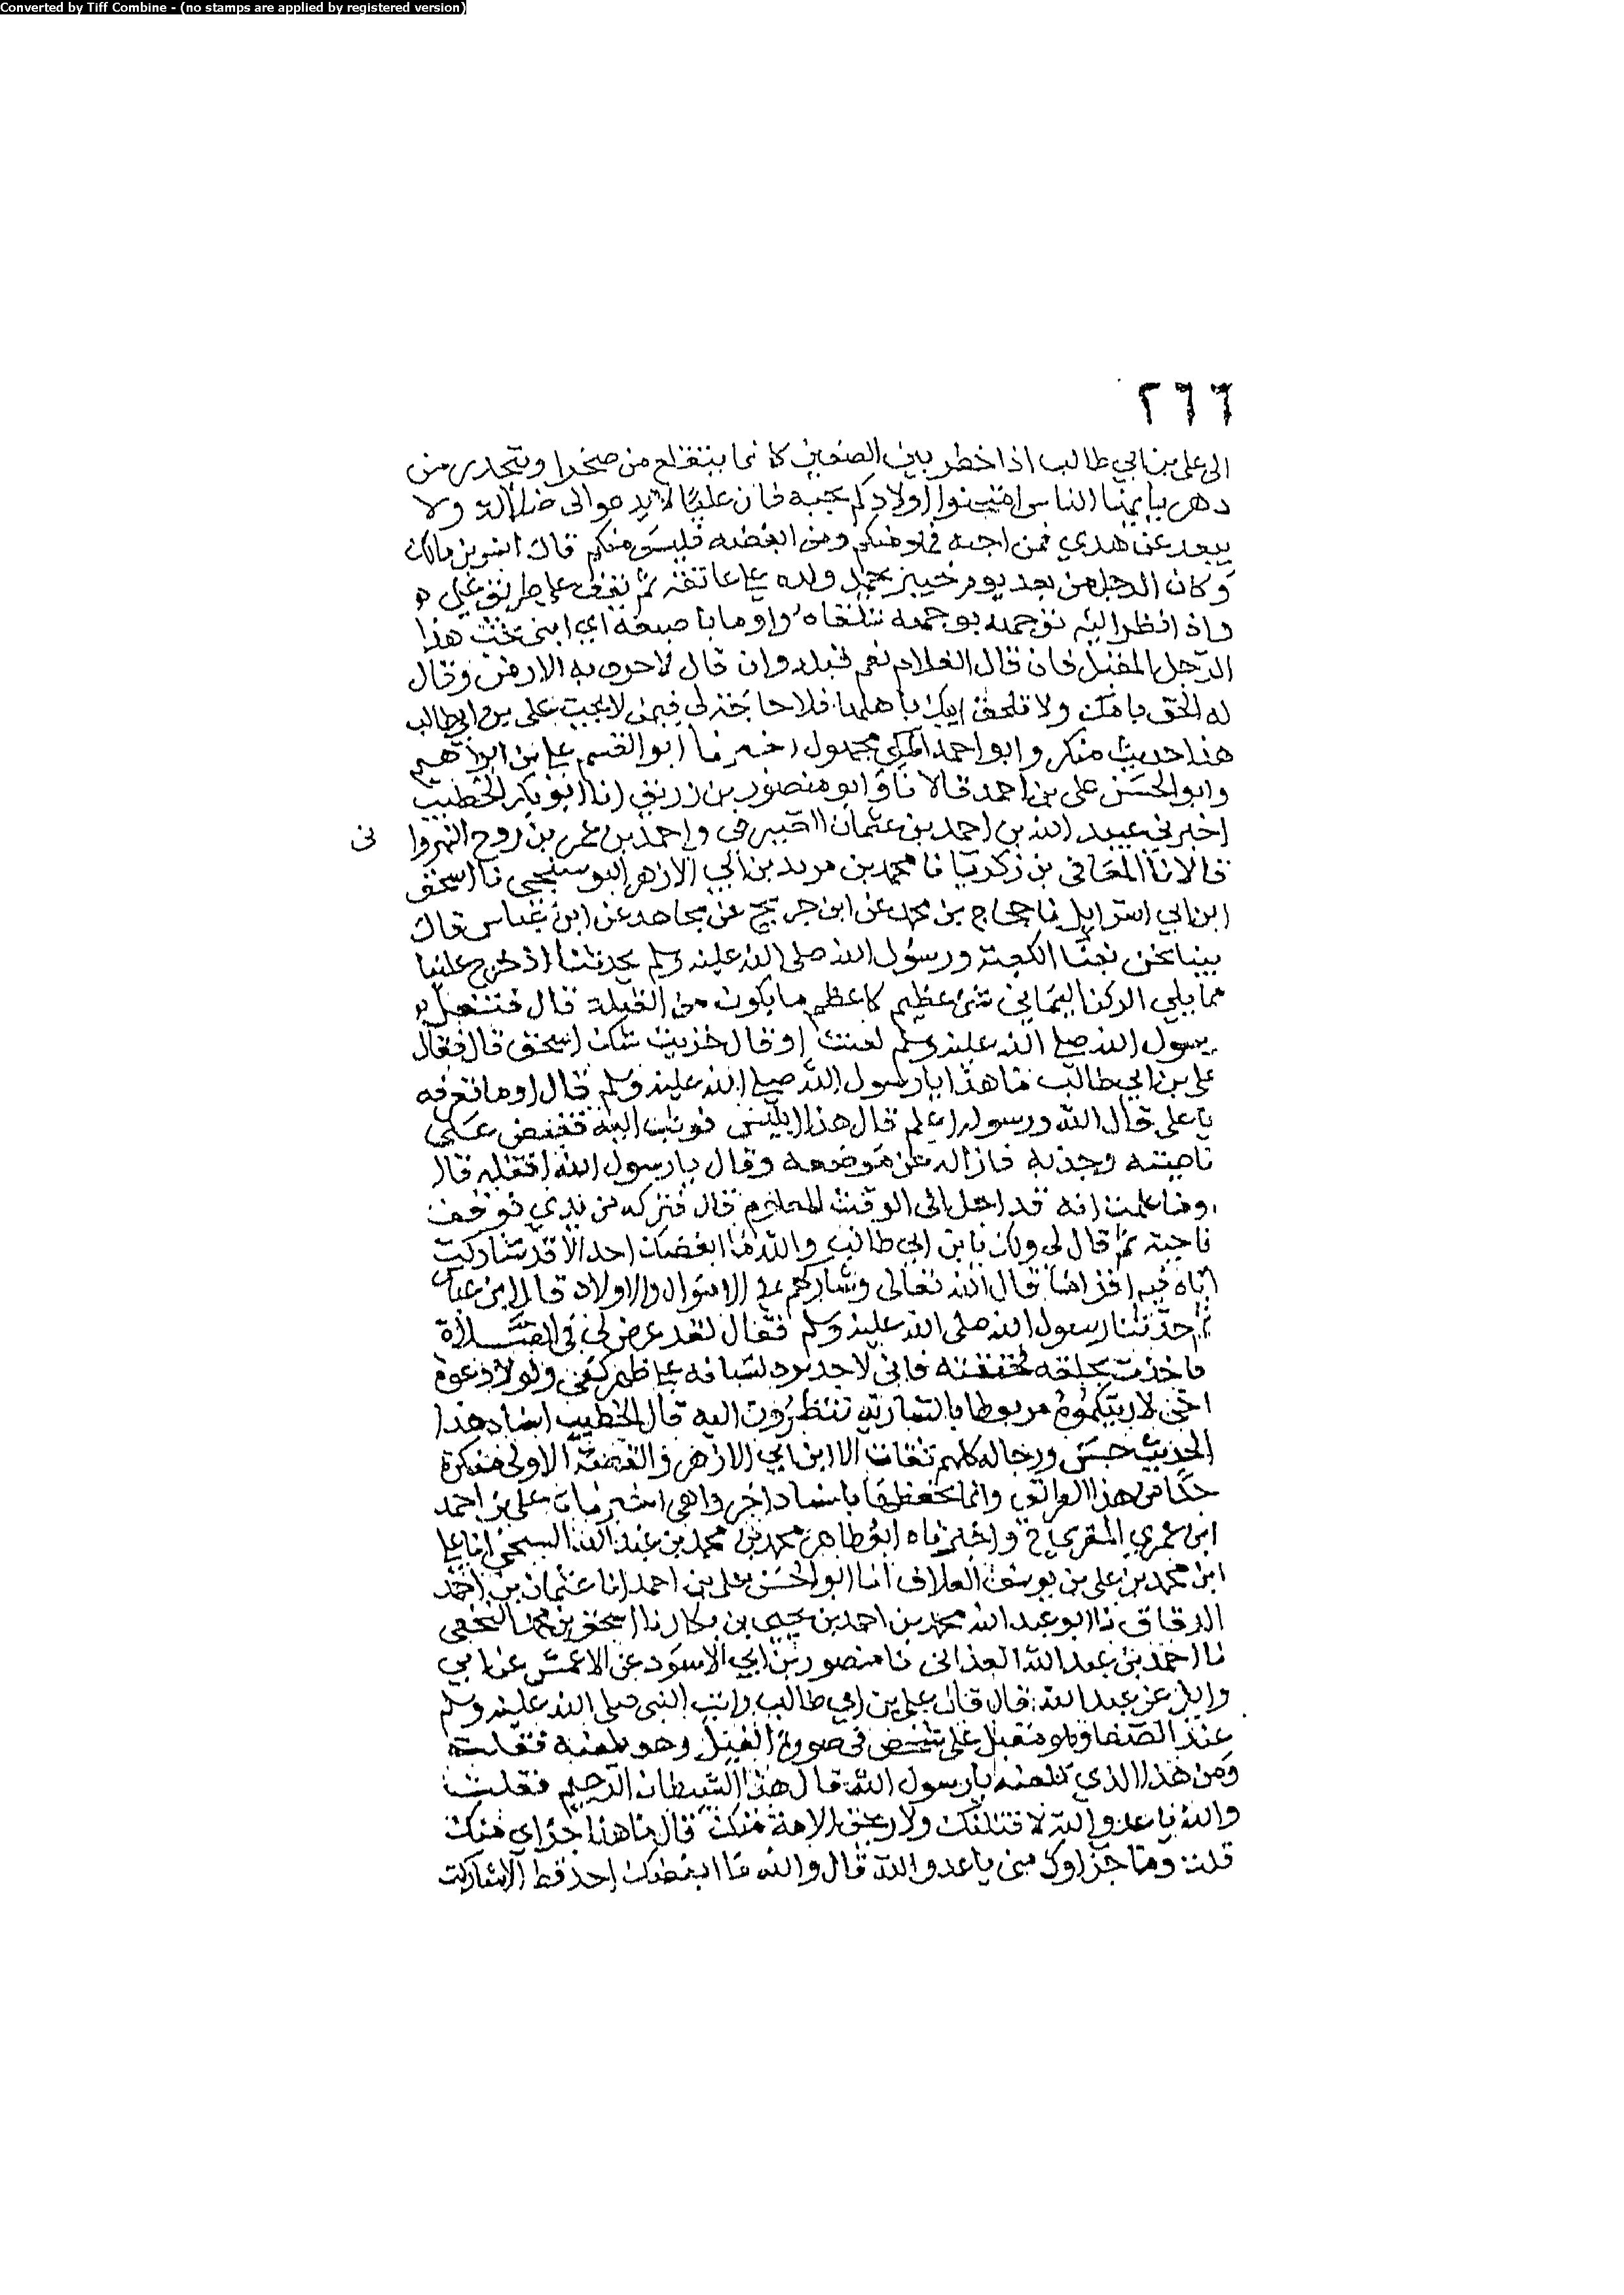 Converted by Tiff Combine - (no stamps are applied by registered version)
٢٦٦
الى على بن ابي طالب اذا خطر بين الصفين كانما يتقلع من صخر او يتحدر من
دهر يا ايها الناس امتحنوا اولادكم بحبه فان عليا لا يدعوا الى ضلالة ولا
يبعد عن هدي فمن احبه فهو منكم ومن ابغضه فليس منكم قال انس بن مالك
وكان الرجل من بعد يوم خيبر يحمل ولده على عاتقه ثم يقف على طريق علي
واذا نظر اليه توجهه بوجهه تلقاه واومأ باصبعه اي ابني تحب هذا
الرجل المقبل فان قال الغلام نعم قبله وان قال لا حرف به الارض وقال
له الحق بامك ولا تلحق ابيك باهلها فلا حاجة لي فيمن لا يحب على بن ابي طالب
هذا حديث منكر وابو احمد المكي مجهول اخبرنا ابو القسم على بن ابراهيم
وابو الحسن على بن احمد قالا نا وابو منصور بن زريق انا ابو بكر الخطيب
اخبرني عبيد الله بن احمد بن عثمان الصيرفى واحمد بن عمر بن روح النهروا نى
قالا نا المعافى بن زكريا نا محمد بن مزيد بن ابي الازهر البوسنجى نا اسحق
ابن ابي اسرايل نا حجاج بن محمد عن ابن جريج عن مجاهد عن ابن عباس قال
بينا نحن بفنا الكعبة ورسول الله صلى الله عليه وسلم يحدثنا اذ خرج علينا
مما يلي الركن اليماني شئ عظيم كاعظم ما يكون من الفيلة قال فتفل
رسول الله صلى الله عليه وسلم لعنت او قال خزيت شك اسحق قال فقال
على بن ابي طالب ما هذا يا رسول الله صلى الله عليه وسلم قال اوما تعرفه
يا على قال الله ورسوله اعلم قال هذا ابليس فوثب اليه فقبض على
ناصيته وجذبه فازاله عن موضعه وقال يا رسول الله اقتله قال
اوما علمت انه قد اجل الى الوقت المعلوم قال فتركه من يدي فوقف
ناحية ثم قال لى ولك يا بن ابي طالب والله ما ابغضك احد الا قد شاركت
اباه فيه اقرا ما قال الله تعالى وشاركهم في الاموال والاولاد قال ابن عباس
ثم حدثنا رسول الله صلى الله عليه وسلم فقال لقد عرض لى فى الصلاة
فاخذت بحلقه فخنقته فانى لاجد برد لسانه على ظهر كفى ولولا دعوة
اخى لاريتكموه مربوطا بالسارية تنظرون اليه قال الخطيب اسناد هذا
الحديث حسن ورجاله كلهم ثقات الا ابن ابي الازهر والقصة الاولى منكرة
جدا من هذا الوجه وانما نحفظها باسناد اخر واهى اخبرناه على بن احمد
ابن عمر المقري ح واخبرناه ابو طاهر محمد بن محمد بن عبد الله السنجى انا على
ابن محمد بن على بن يوسف العلاف انا ابو الحسن على بن احمد انا عثمان بن احمد
الدقاق نا ابو عبد الله محمد بن احمد بن يحيى بن بكار نا اسحق بن محمد النخعى
نا احمد بن عبد الله الغدانى نا منصور بن ابي الاسود عن الاعمش عن ابي
وايل عن عبد الله قال قال على بن ابي طالب رايت النبى صلى الله عليه وسلم
عند الصفا وهو مقبل على شخص فى صورة الفيل وهو يلعنه فقلت
ومن هذا الذي تلعنه يا رسول الله قال هذا الشيطان الرجيم فقلت
والله يا عدو الله لاقتلنك ولاريحن الامة منك قال ما هذا جزاي منك
قلت وما جزاوك منى يا عدو الله قال والله ما ابغضك احد قط الا شاركت